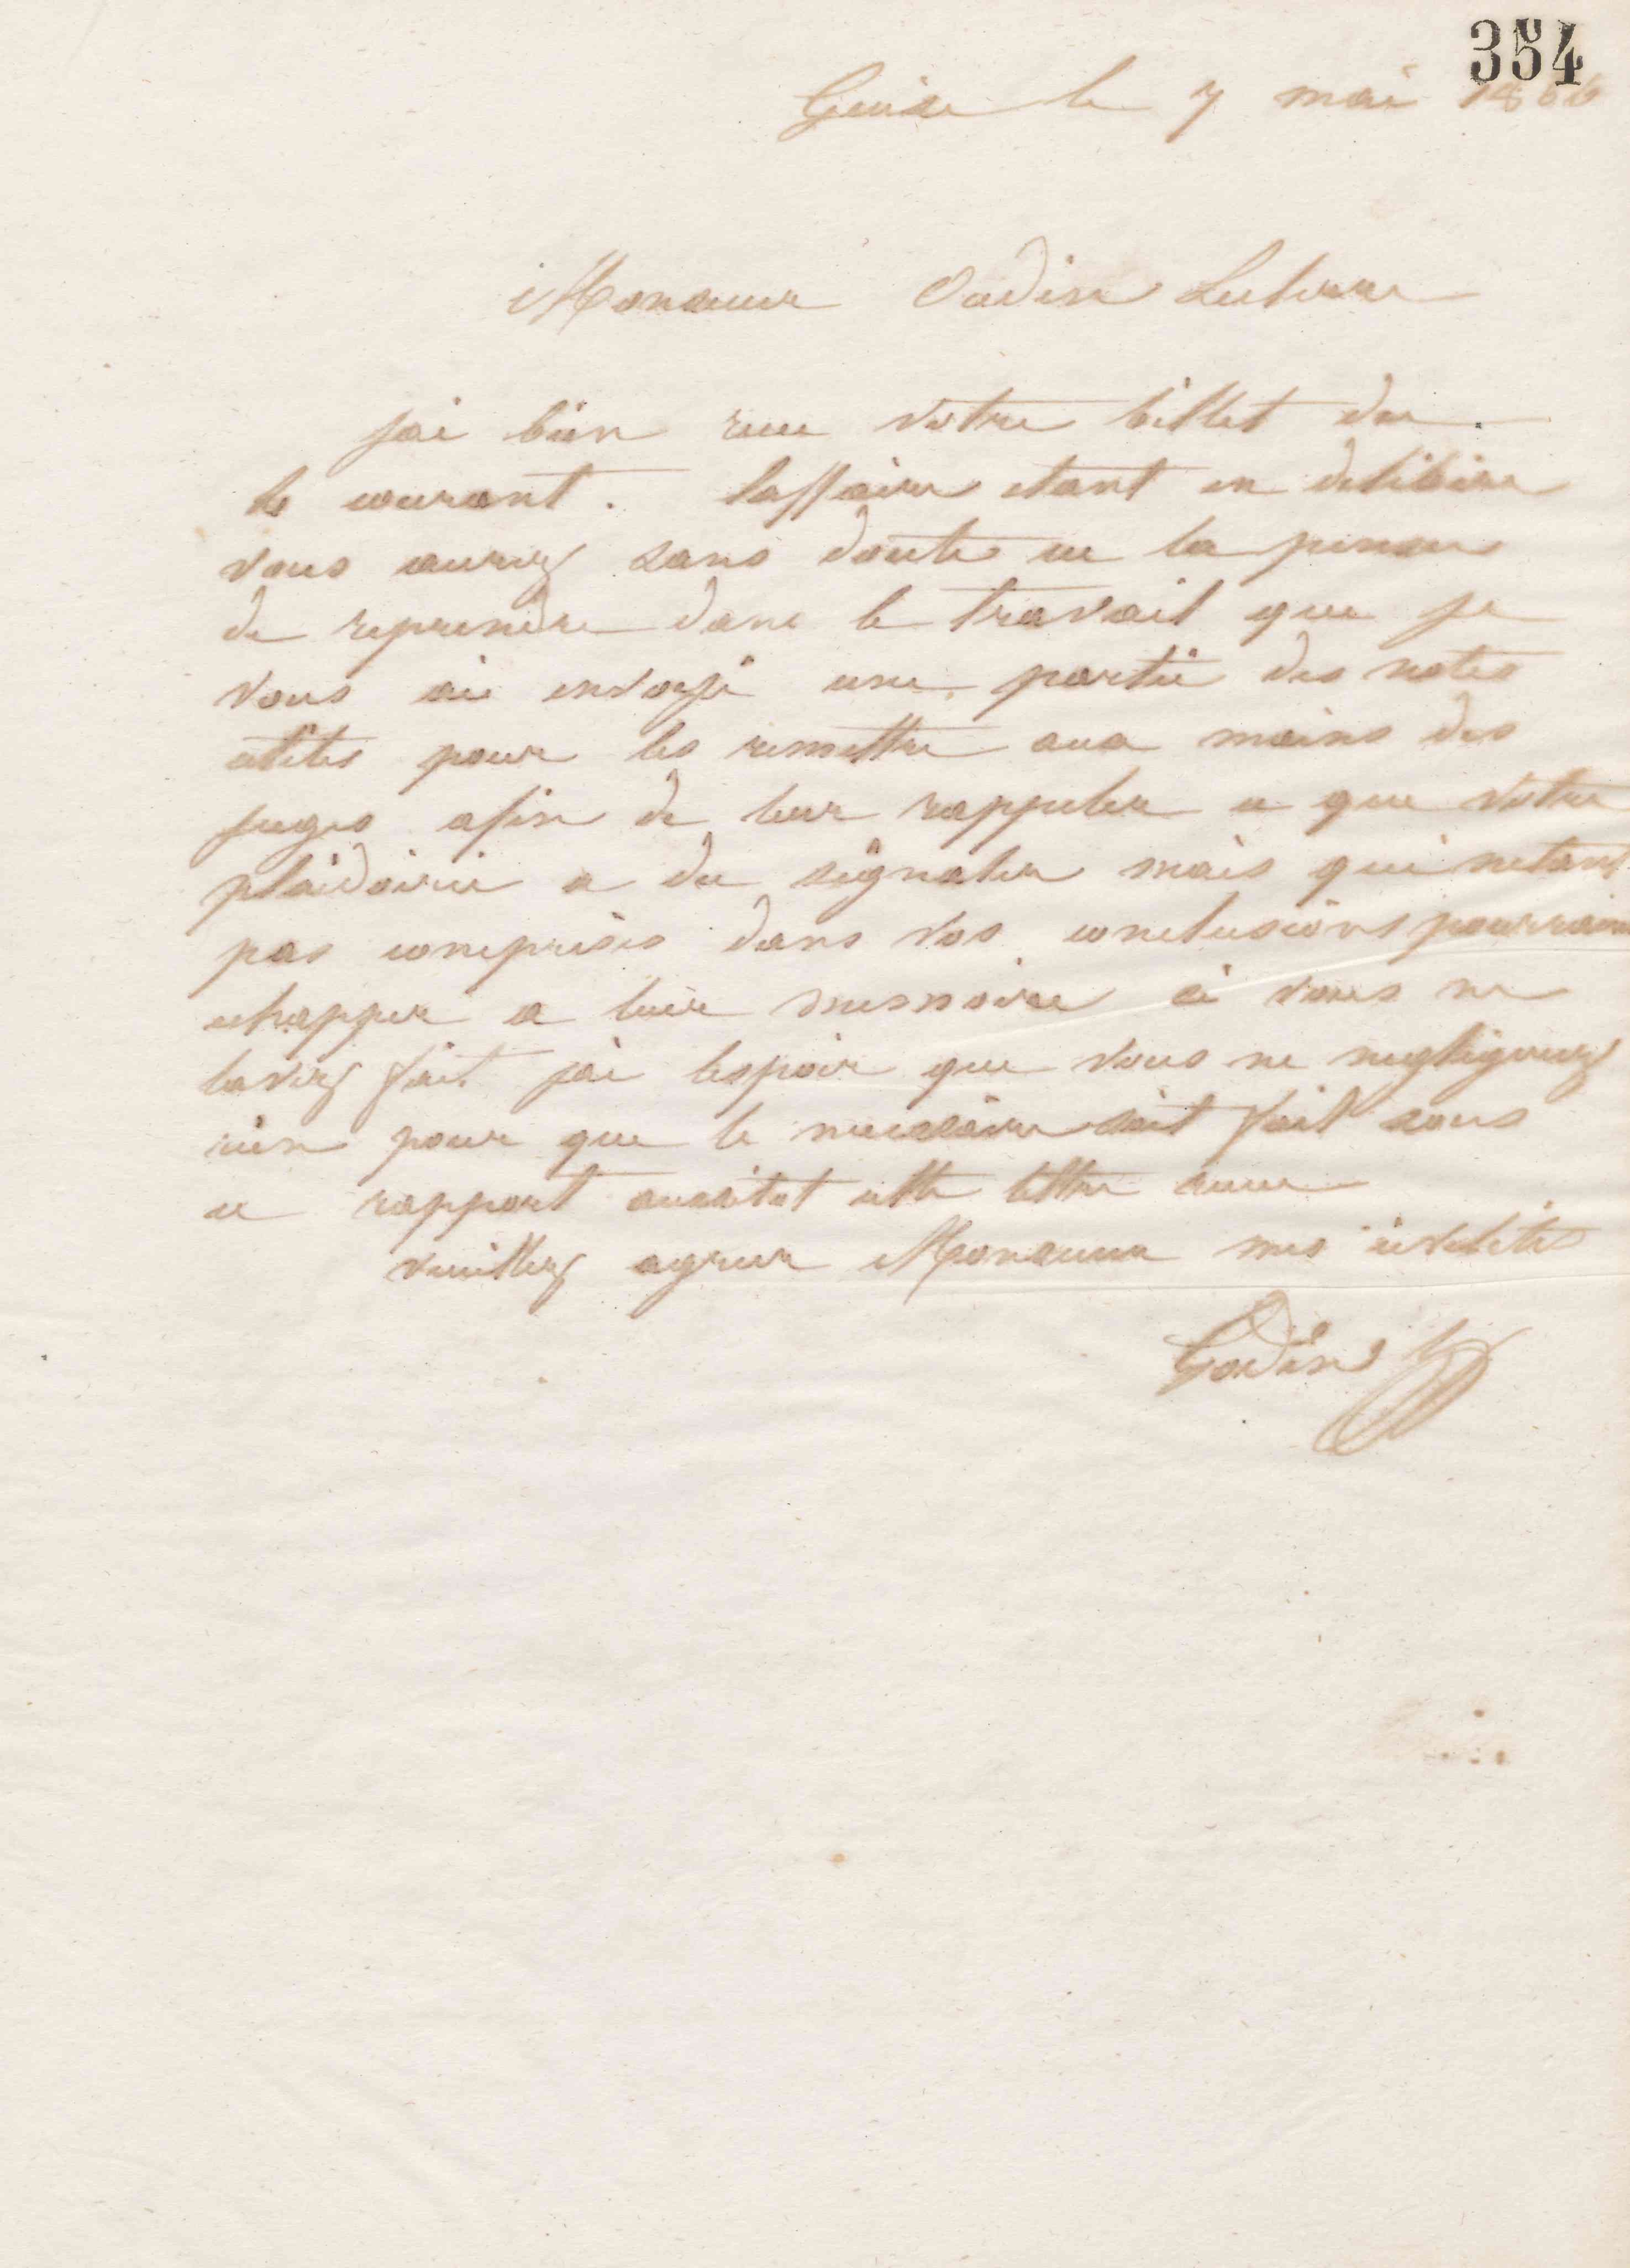 354
Guise le 7 mai 1866
Monsieur Oudin Leclerre
jai bien recu votre billet du
le courant. laffaire etant en delibere
vous aurez sans doute eu la pensee
de reprendre dans le travail que je
vous ai envoye une partie des notes
utiles pour les remettre aux mains des
juges afin de leur rappeler ce que votre
plaidoirie a du signaler mais qui netant
pas comprises dans vos conclusions pourraient
echapper a leur memoire si vous ne
laviez fait jai lespoir que vous ne negligerez
rien pour que le necessaire soit fait sous
ce rapport aussitot cette lettre recue
veuillez agreer Monsieur mes civilites
Godin